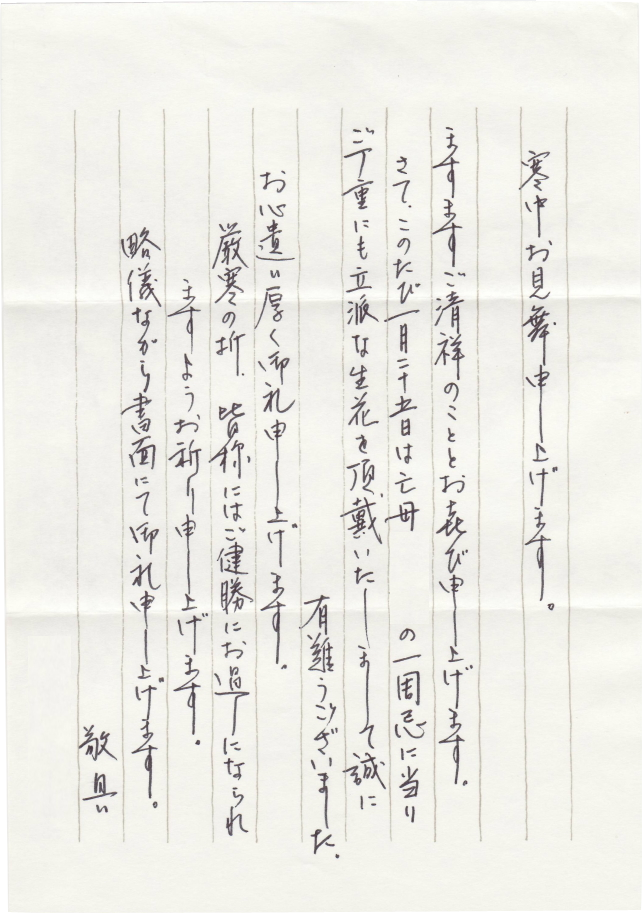 寒中お見舞申し上げます。
ますますご清祥のこととお喜び申し上げます。
さて、このたび一月二十五日は亡母　　の一周忌に当り
ご丁重にも立派な生花を頂戴いたしまして誠に
有難うございました。
お心遣い厚く御礼申し上げます。
厳寒の折、皆様にはご健勝にお過しになられ
ますようお祈り申し上げます。
略儀ながら書面にて御礼申し上げます。
敬具